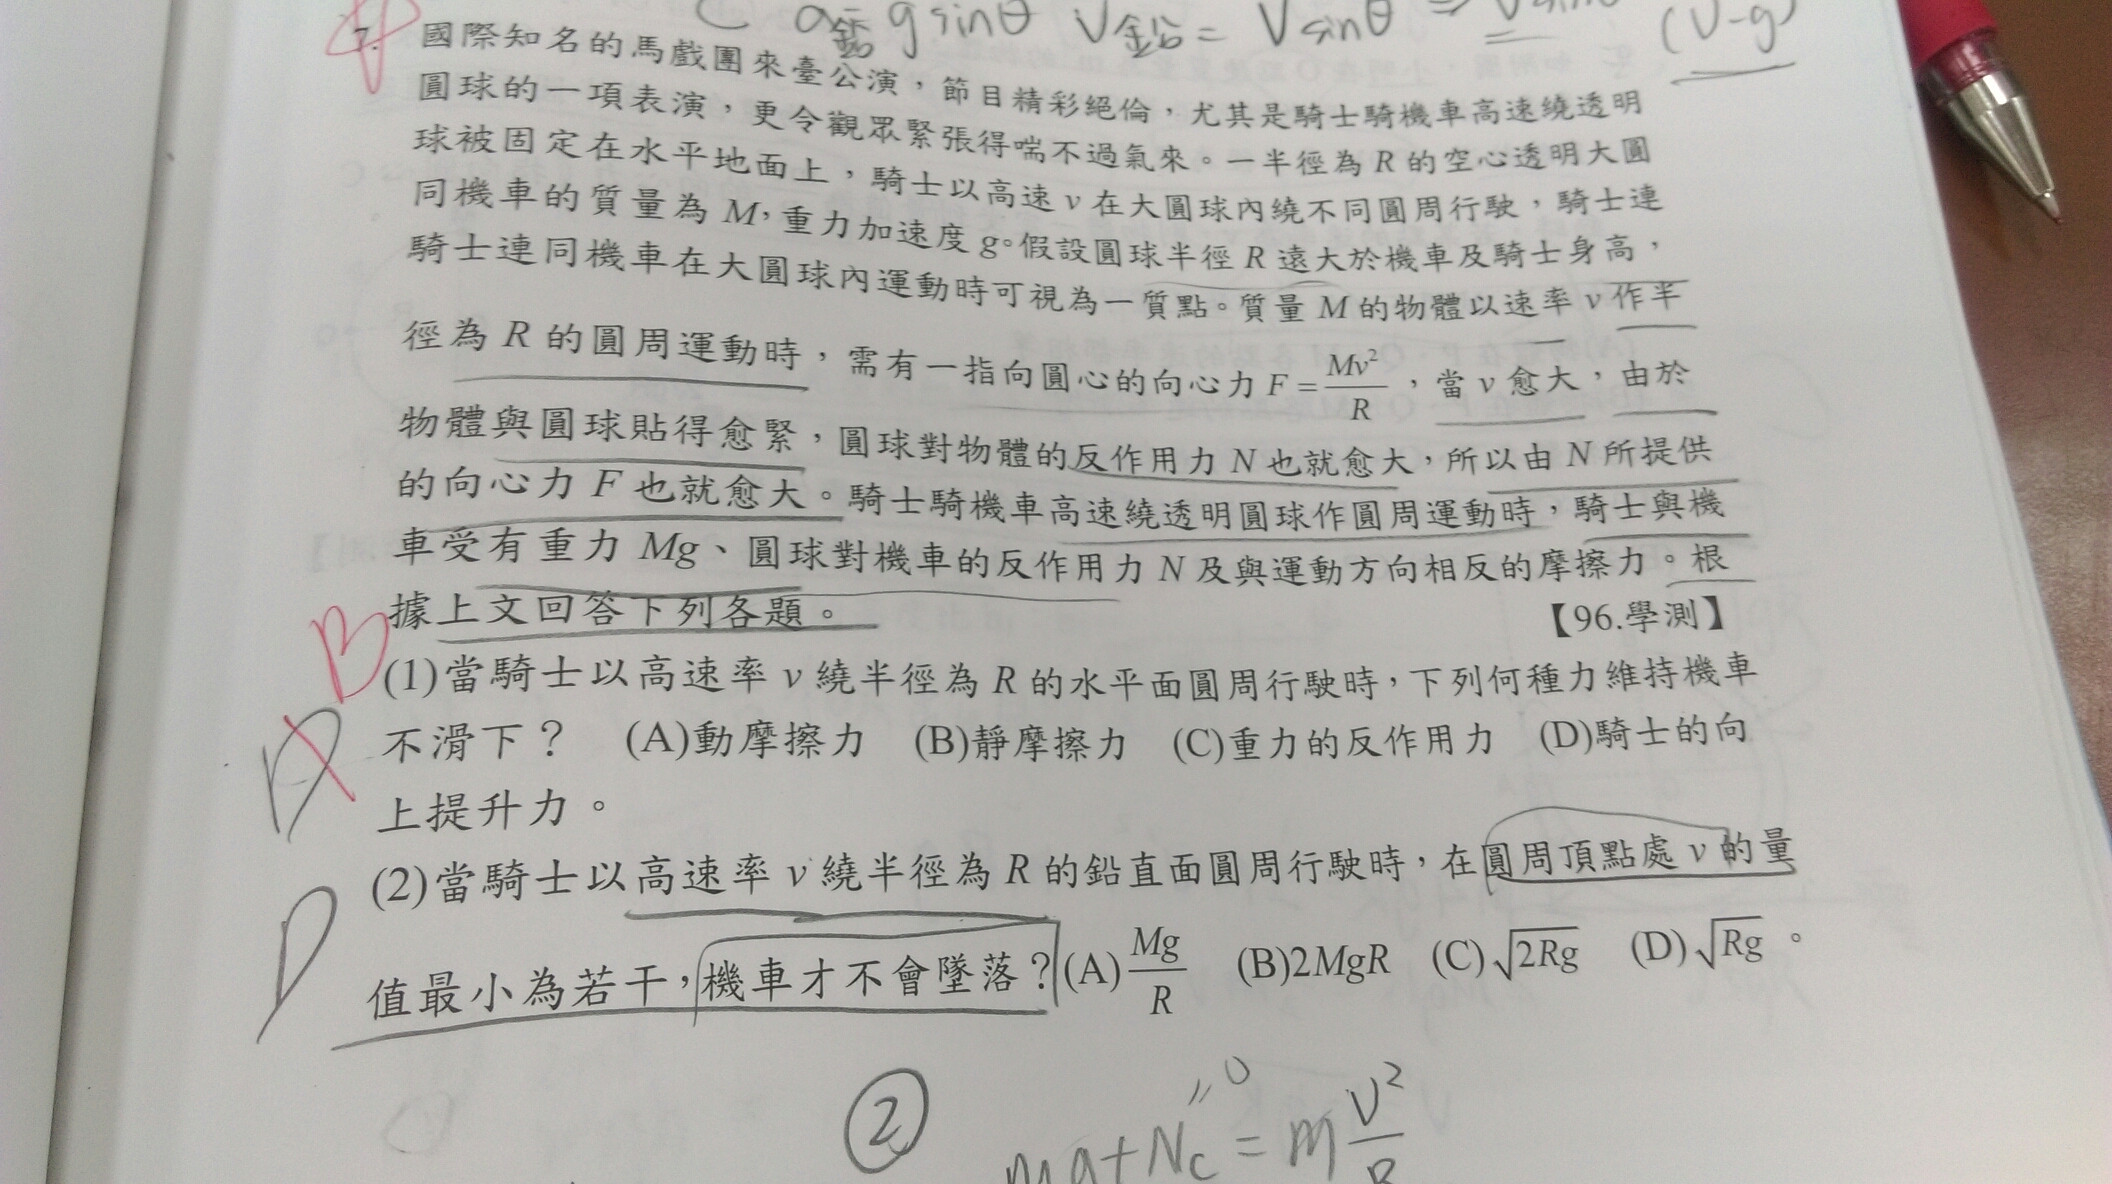 C a鉛 g sinθ V鉛 = V sinθ ⇒ V sinθ (V-g)
7. 國際知名的馬戲團來臺公演，節目精彩絕倫，尤其是騎士騎機車高速繞透明
圓球的一項表演，更令觀眾緊張得喘不過氣來。一半徑為 R 的空心透明大圓
球被固定在水平地面上，騎士以高速 v 在大圓球內繞不同圓周行駛，騎士連
同機車的質量為 M，重力加速度 g。假設圓球半徑 R 遠大於機車及騎士身高，
騎士連同機車在大圓球內運動時可視為一質點。質量 M 的物體以速率 v 作半
徑為 R 的圓周運動時，需有一指向圓心的向心力 F = Mv²/R ，當 v 愈大，由於
物體與圓球貼得愈緊，圓球對物體的反作用力 N 也就愈大，所以由 N 所提供
的向心力 F 也就愈大。騎士騎機車高速繞透明圓球作圓周運動時，騎士與機
車受有重力 Mg、圓球對機車的反作用力 N 及與運動方向相反的摩擦力。根
據上文回答下列各題。 【96.學測】
B (1)當騎士以高速率 v 繞半徑為 R 的水平面圓周行駛時，下列何種力維持機車
不滑下？ (A)動摩擦力 (B)靜摩擦力 (C)重力的反作用力 (D)騎士的向
上提升力。
D (2)當騎士以高速率 v 繞半徑為 R 的鉛直面圓周行駛時，在圓周頂點處 v 的量
值最小為若干，機車才不會墜落？(A) Mg/R (B)2MgR (C)√2Rg (D)√Rg 。
② mg+Nc = m V²/R
=0